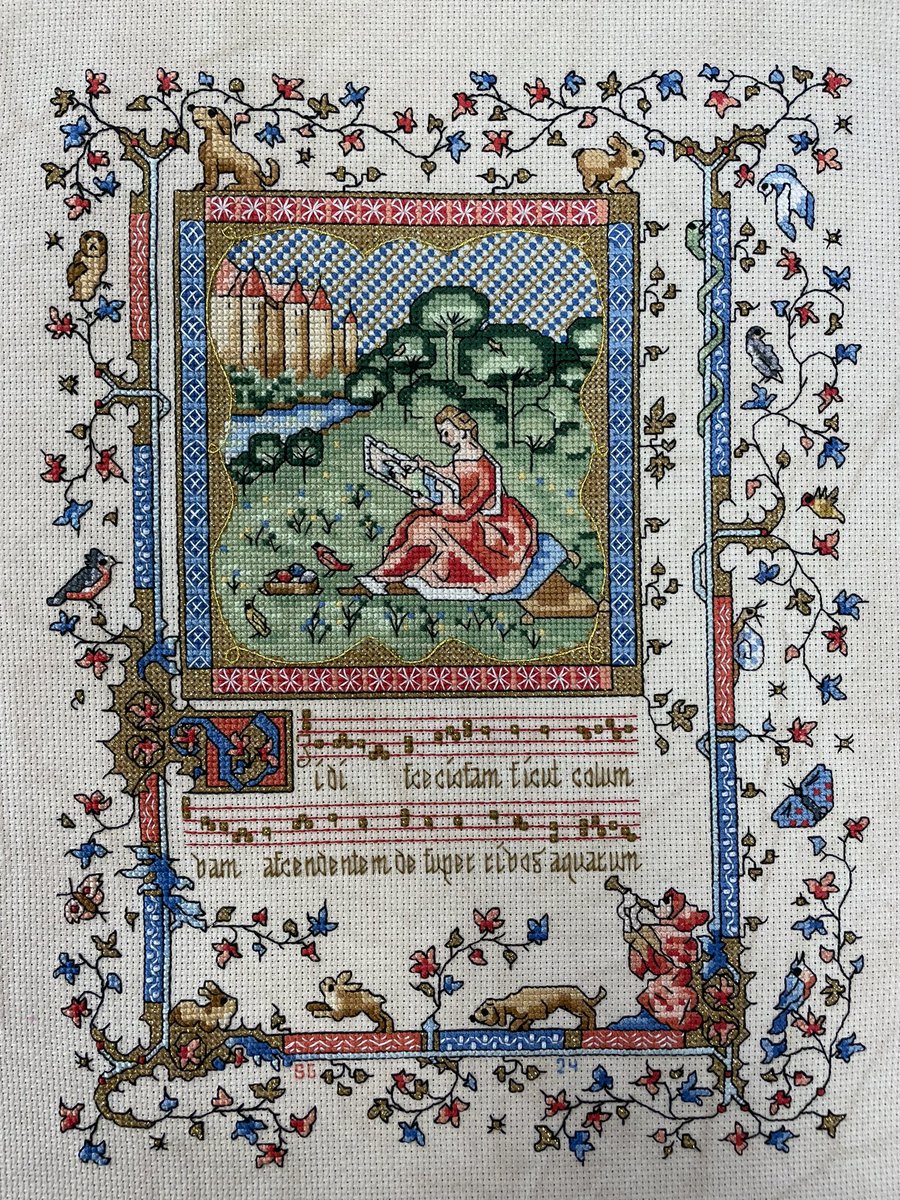 Vidi ſpecioſam ſicut colum
bam aſcendentem de ſuper rivos aquarum
SG 24